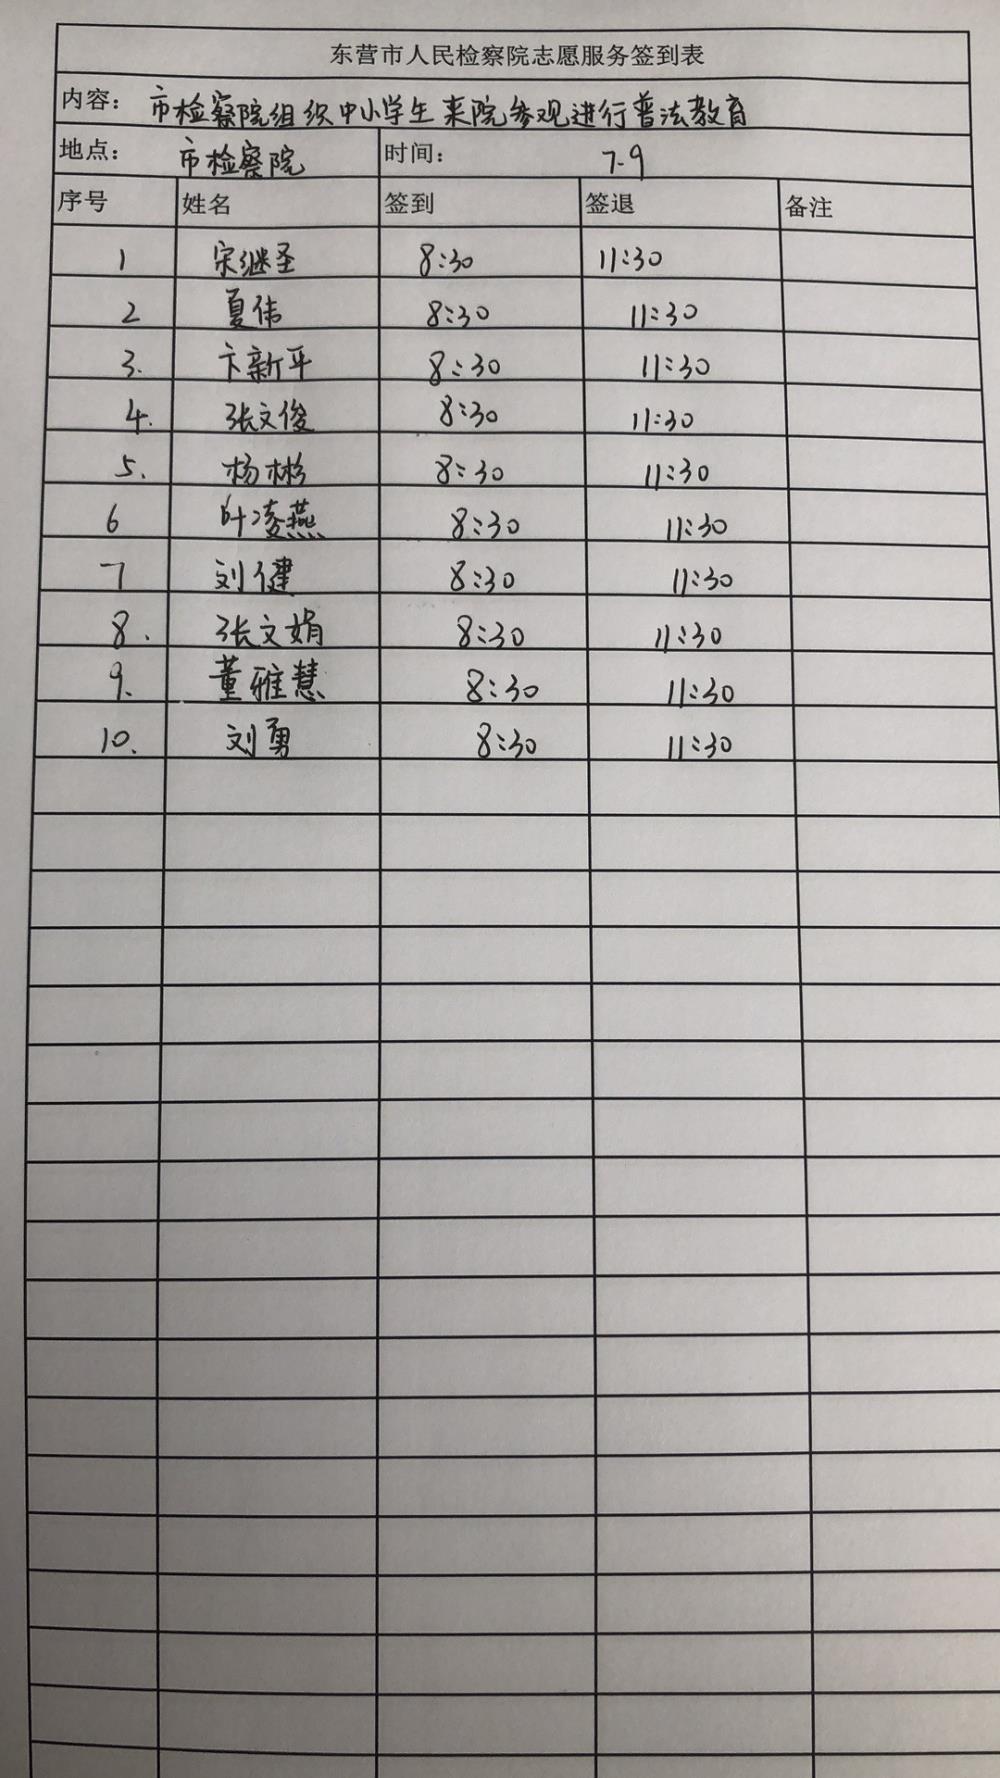 东营市人民检察院志愿服务签到表
内容： 市检察院组织中小学生来院参观进行普法教育
地点： 市检察院 时间： 7-9
序号 姓名 签到 签退 备注
1 宋继圣 8:30 11:30
2 夏伟 8:30 11:30
3. 卞新平 8:30 11:30
4. 张文俊 8:30 11:30
5. 杨彬 8:30 11:30
6 叶凌燕 8:30 11:30
7 刘健 8:30 11:30
8. 张文娟 8:30 11:30
9. 董雅慧 8:30 11:30
10. 刘勇 8:30 11:30